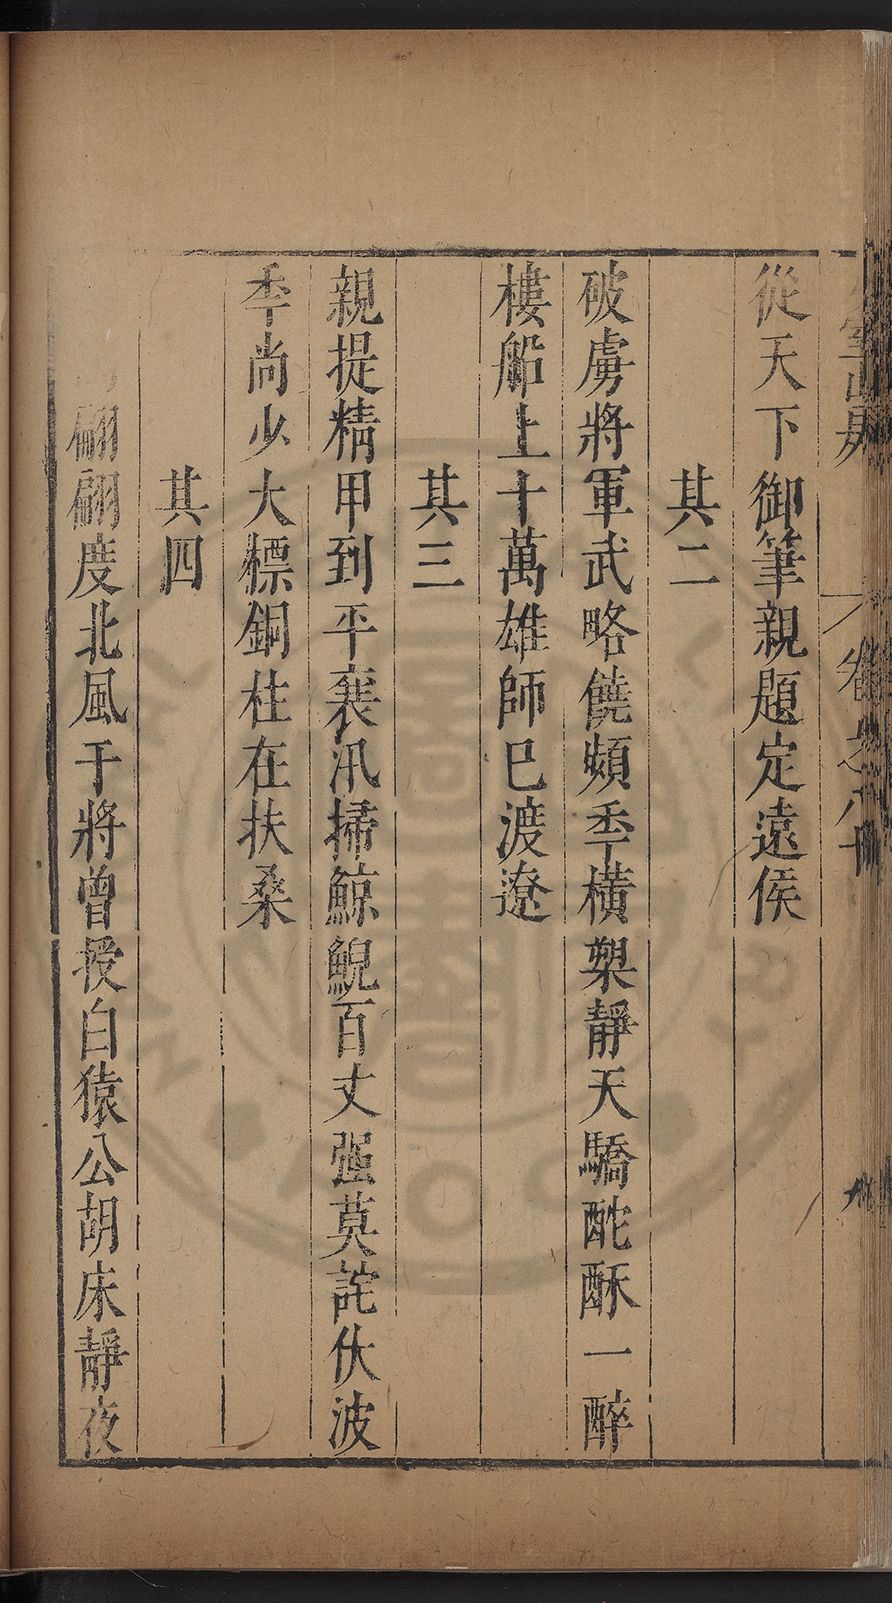 從天下御筆親題定遠侯
其二
破虜將軍武略饒頻秊橫槊靜天驕酡酥一醉
樓船上十萬雄師巳渡遼
其三
親提精甲到平襄汛掃鯨鯢百丈强莫詫伏波
秊尚少大標銅柱在扶桑
其四
翩翩度北風于將曾授白猿公胡床靜夜
卷之八十